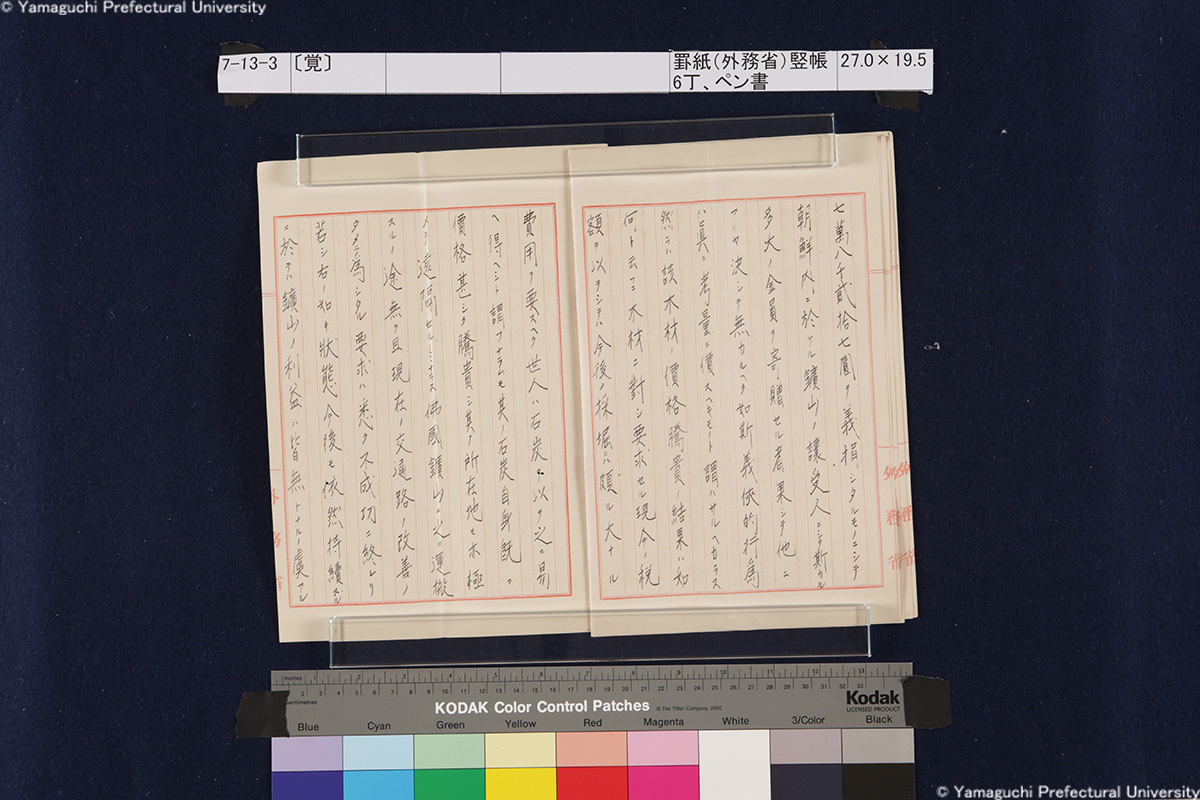 © Yamaguchi Prefectural University
7-13-3
〔覚〕
罫紙(外務省)竪帳
6丁、ペン書
27.0×19.5
七萬八千貳拾七圓ヲ義捐シタルモノニシテ
朝鮮内ニ於ケル鑛山ノ讓受人ニシテ斯カル
多大ノ金員ヲ寄贈セル者果シテ他ニ
アリヤ決シテ無カルヘク如斯義俠的行為
ハ眞ニ考量ニ價スヘキモノト謂ハサルヘカラス
然ラハ該木材ノ價格騰貴ノ結果ハ如
何ト云フニ木材ニ對シ要求セル現今ノ税
額ヲ以テシテハ今後ノ採堀ニハ頗ル大ナル
費用ヲ要スヘク世人ハ石炭ヲ以テ之ニ易
ヘ得ヘシト謂フナラムモ其ノ石炭自身既ニ
價格甚シク騰貴シ其ノ所在地モ亦極
メテ遠隔セルノミナラス佛國鑛山ニ之ヲ運搬
スルノ途無ク且現在ノ交通路ノ改善ノ
タメニ為シタル要求ハ悉ク不成功ニ終レリ
若シ右ノ如キ狀態今後モ依然持續スル
ニ於テハ鑛山ノ利益ハ皆無トナルノ虞アル
inches
Centimetres
KODAK Color Control Patches
© The Tiffen Company, 2000
Kodak
LICENSED PRODUCT
Blue Cyan Green Yellow Red Magenta White 3/Color Black
© Yamaguchi Prefectural University